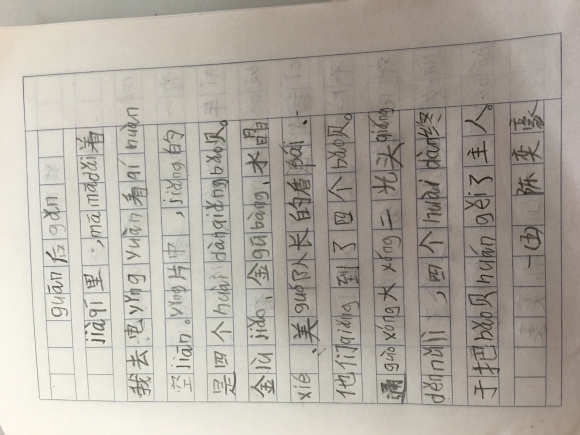 guān后gǎn
jiàqī里，māmadài着
我去电yǐng yuàn看qí huàn
空jiān。yǐng片中，jiǎng的
是四个huài dàn qiǎng bǎo贝。
金lǘ jiǎo、金gū bàng、水晶
xié、美guó队长的盾pái．
他们qiǎng到了四个bǎo贝。
通guò xióng大xióng二光头qiáng
děnnǔlì，四个huài dàn终
于把bǎo贝huán gěi了主人。
一(四) 陈奕豪